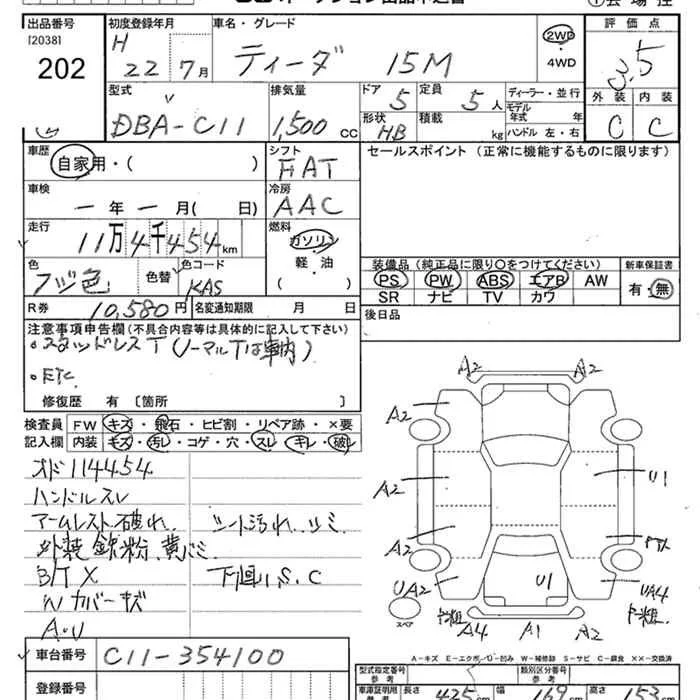 出品番号 初度登録年月 車名・グレード 評価点
[2038] H 22 7月 ティーダ 15M 2WD ・ 4WD 3.5
202 型式 排気量 ドア 定員 ディーラー・並行 外装 内装
DBA-C11 1,500 CC 5 5人 モデル年式 年 C C
形状 HB 積載 kg ハンドル 左・右
車歴 シフト セールスポイント (正常に機能するものに限ります)
自家用・( ) FAT
車検 冷房
ー年ー月( 日) AAC
走行 燃料
11万4千454km ガソリン
色 色替 色コード 軽・油 装備品 (純正品に限り○をつけてください) 新車保証書
フジ色 KAS ( ) PS PW ABS エアB AW 有・無
R券 10,580円 名変通知期限 月 日 SR ナビ TV カワ
注意事項申告欄(不具合内容等は具体的に記入して下さい) 後日品
・スタッドレスT(ノーマルTは車内)
・ETC
修復歴 有 〔箇所 〕
検査員 FW キズ・飛石・ヒビ割・リペア跡・×要
記入欄 内装 キズ・汚レ・コゲ・穴・スレ・キレ・破レ
オド114454
ハンドルスレ
アームレスト破れ、シート汚れ、シミ
外装鉄粉、黄バミ
B/T X 下回り、S、C
Wカバーキズ
A・U
A2 A2
A2
A2 U1
A2
UA2 U1 UA4
スペア A4 A1 A2
A-キズ E-エクボ U-凹み W-補修跡 S-サビ C-腐食 ××-交換済
車台番号 C11-354100
登録番号
型式指定番号 類別区分番号
車庫証明用 長さ 425 cm 幅 169 cm 高さ 153 cm